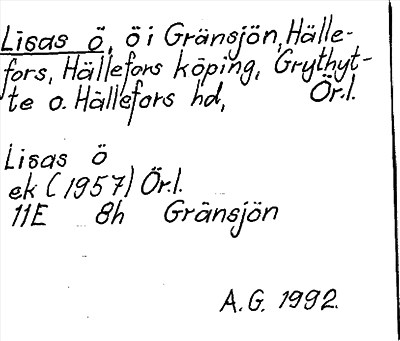 Lisas ö, ö i Gränsjön, Hälle-
fors, Hällefors köping, Grythyt-
te o. Hällefors hd, Ör.l.
Lisas ö
ek (1957) Ör.l.
11E 8h Gränsjön
A.G. 1992.